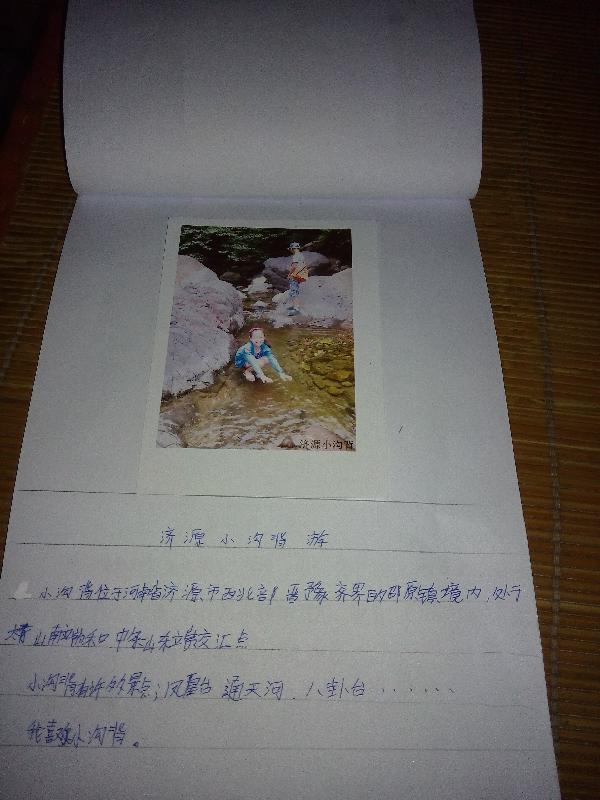 济源小沟背
济源小沟背游
小沟背位于河南省济源市西北部晋豫交界的邵原镇境内,处于
山南 和中条山系 交汇点
小沟背有许多景点;凤凰台 通天河、八卦台......
我喜欢小沟背。